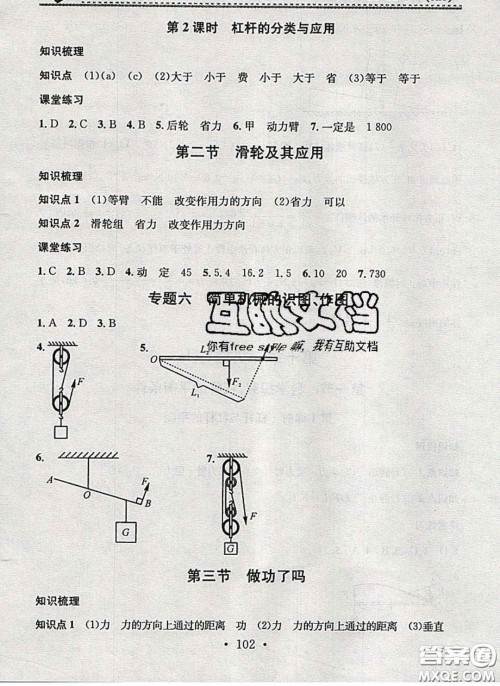 第2课时 杠杆的分类与应用
知识梳理
知识点 (1)(a) (c) (2)大于 小于 费 小于 大于 省 (3)等于 等于
课堂练习
1. D 2. C 3. B 4. B 5. 后轮 省力 6. 甲 动力臂 7. 一定是 1 800
第二节 滑轮及其应用
知识梳理
知识点1 (1)等臂 不能 改变作用力的方向 (2)省力 可以
知识点2 滑轮组 省力 改变作用力方向
课堂练习
1. C 2. B 3. D 4. 动 定 45 5. 5.4 16.2 1.5 6. 10 20 7. 730
专题六 简单机械的识图、作图
互助文档
你有free style嘛，我有互助文档
1. A 2. D 3. B
4.
F
5.
L₂
F₂
L₁
6.
A
O
F
B
G
7.
F
G
第三节 做功了吗
知识梳理
知识点1 (1)力 力的方向上通过的距离 功 (2)力 力的方向上通过的距离 (3)垂直
· 102 ·
答案圈
MXQE.COM